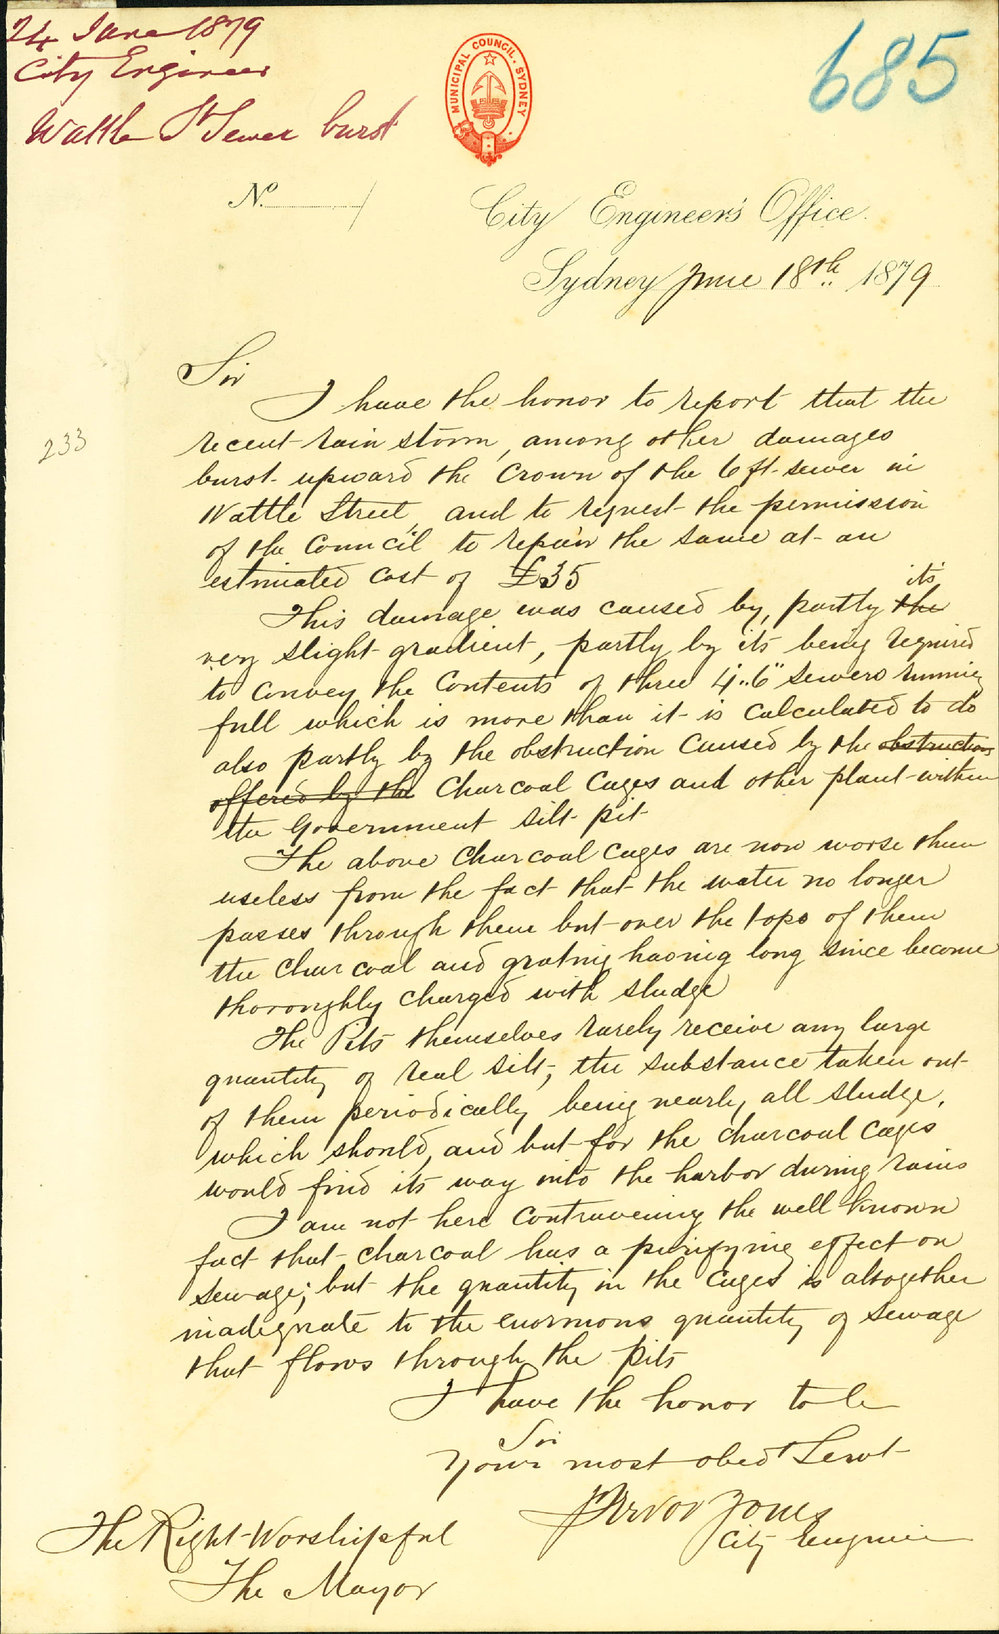 24 June 1879
City Engineer
Wattle St Sewer burst
MUNICIPAL COUNCIL. SYDNEY
685
No.
City Engineer's Office.
Sydney June 18th 1879
233
Sir
I have the honor to report that the
recent rain storm, among other damages
burst upward the Crown of the 6ft sewer in
Wattle Street, and to request the permission
of the Council to repair the same at an
estimated cost of £35
its
This damage was caused by, partly the
very slight gradient, partly by its being required
to convey the contents of three 4'..6" sewers running
full which is more than it is calculated to do
also partly by the obstruction caused by the obstruction
offered by the Charcoal Cages and other plant within
the Government silt pit
The above Charcoal Cages are now worse than
useless from the fact that the water no longer
passes through them but over the tops of them
the Charcoal and grating having long since become
thoroughly charged with sludge
The Pits themselves rarely receive any large
quantity of real silt, the substance taken out
of them periodically being nearly all sludge,
which should, and but for the charcoal cages
would find its way into the harbor during rains
I am not here contravening the well known
fact that charcoal has a purifying effect on
sewage; but the quantity in the Cages is altogether
inadequate to the enormous quantity of sewage
that flows through the pits
I have the honor to be
Sir
Your most obedt Servt
Trevor Jones
City Engineer
The Right Worshipful
The Mayor